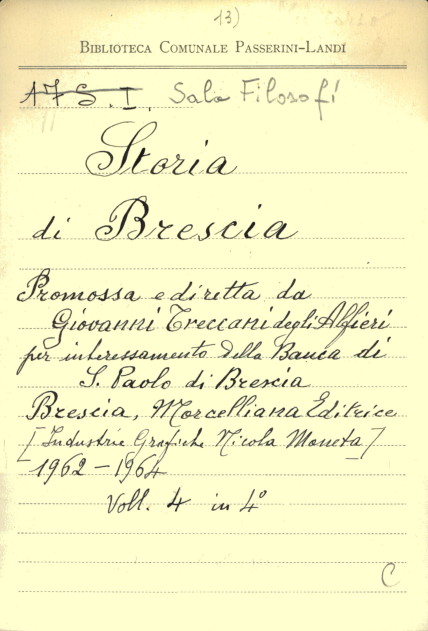 13)
BIBLIOTECA COMUNALE PASSERINI-LANDI
A7 S. I. Sala Filosofi
Storia
di Brescia
Promossa e diretta da
Giovanni Treccani degli Alfieri
per interessamento della Banca di
S. Paolo di Brescia
Brescia, Morcelliana Editrice
[Industrie Grafiche Nicola Moneta]
1962-1964
Voll. 4 in 4°
C